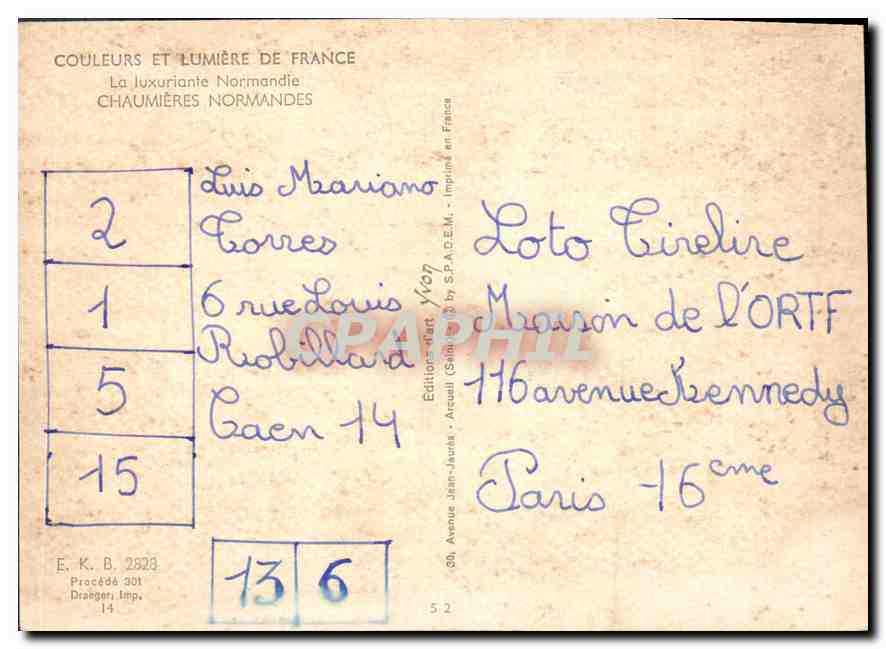 COULEURS ET LUMIÈRE DE FRANCE
La luxuriante Normandie
CHAUMIÈRES NORMANDES
2
1
5
15
Luis Mariano
Torres
6 rue Louis
Robillard
Caen 14
13 6
E. K. B. 2828
Procédé 301
Draeger, Imp.
14
30, Avenue Jean-Jaurès - Arcueil (Seine) by S.P.A.D.E.M. - Imprimé en France
Editions d'art Yvon
52
Loto Tirelire
Maison de l'ORTF
116 avenue Kennedy
Paris 16eme
CPAPHIL